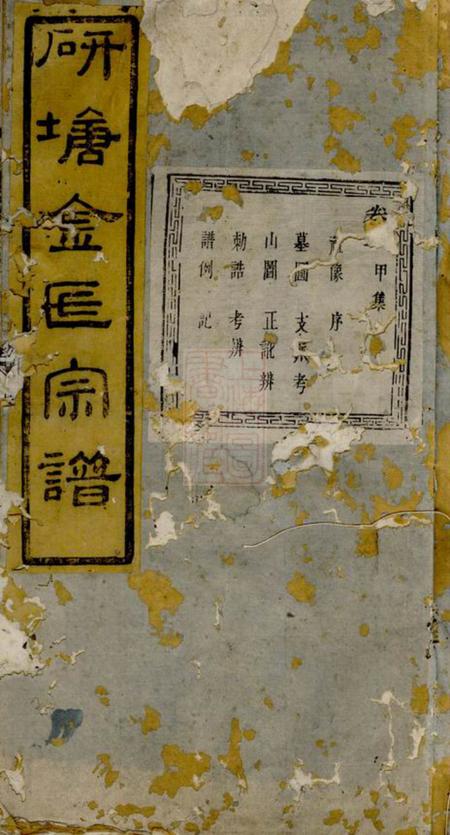 研塘金氏宗譜
卷
甲集
像 序
墓圖 支 考
山圖 正訛辨
勅誥 考辨
譜例 記